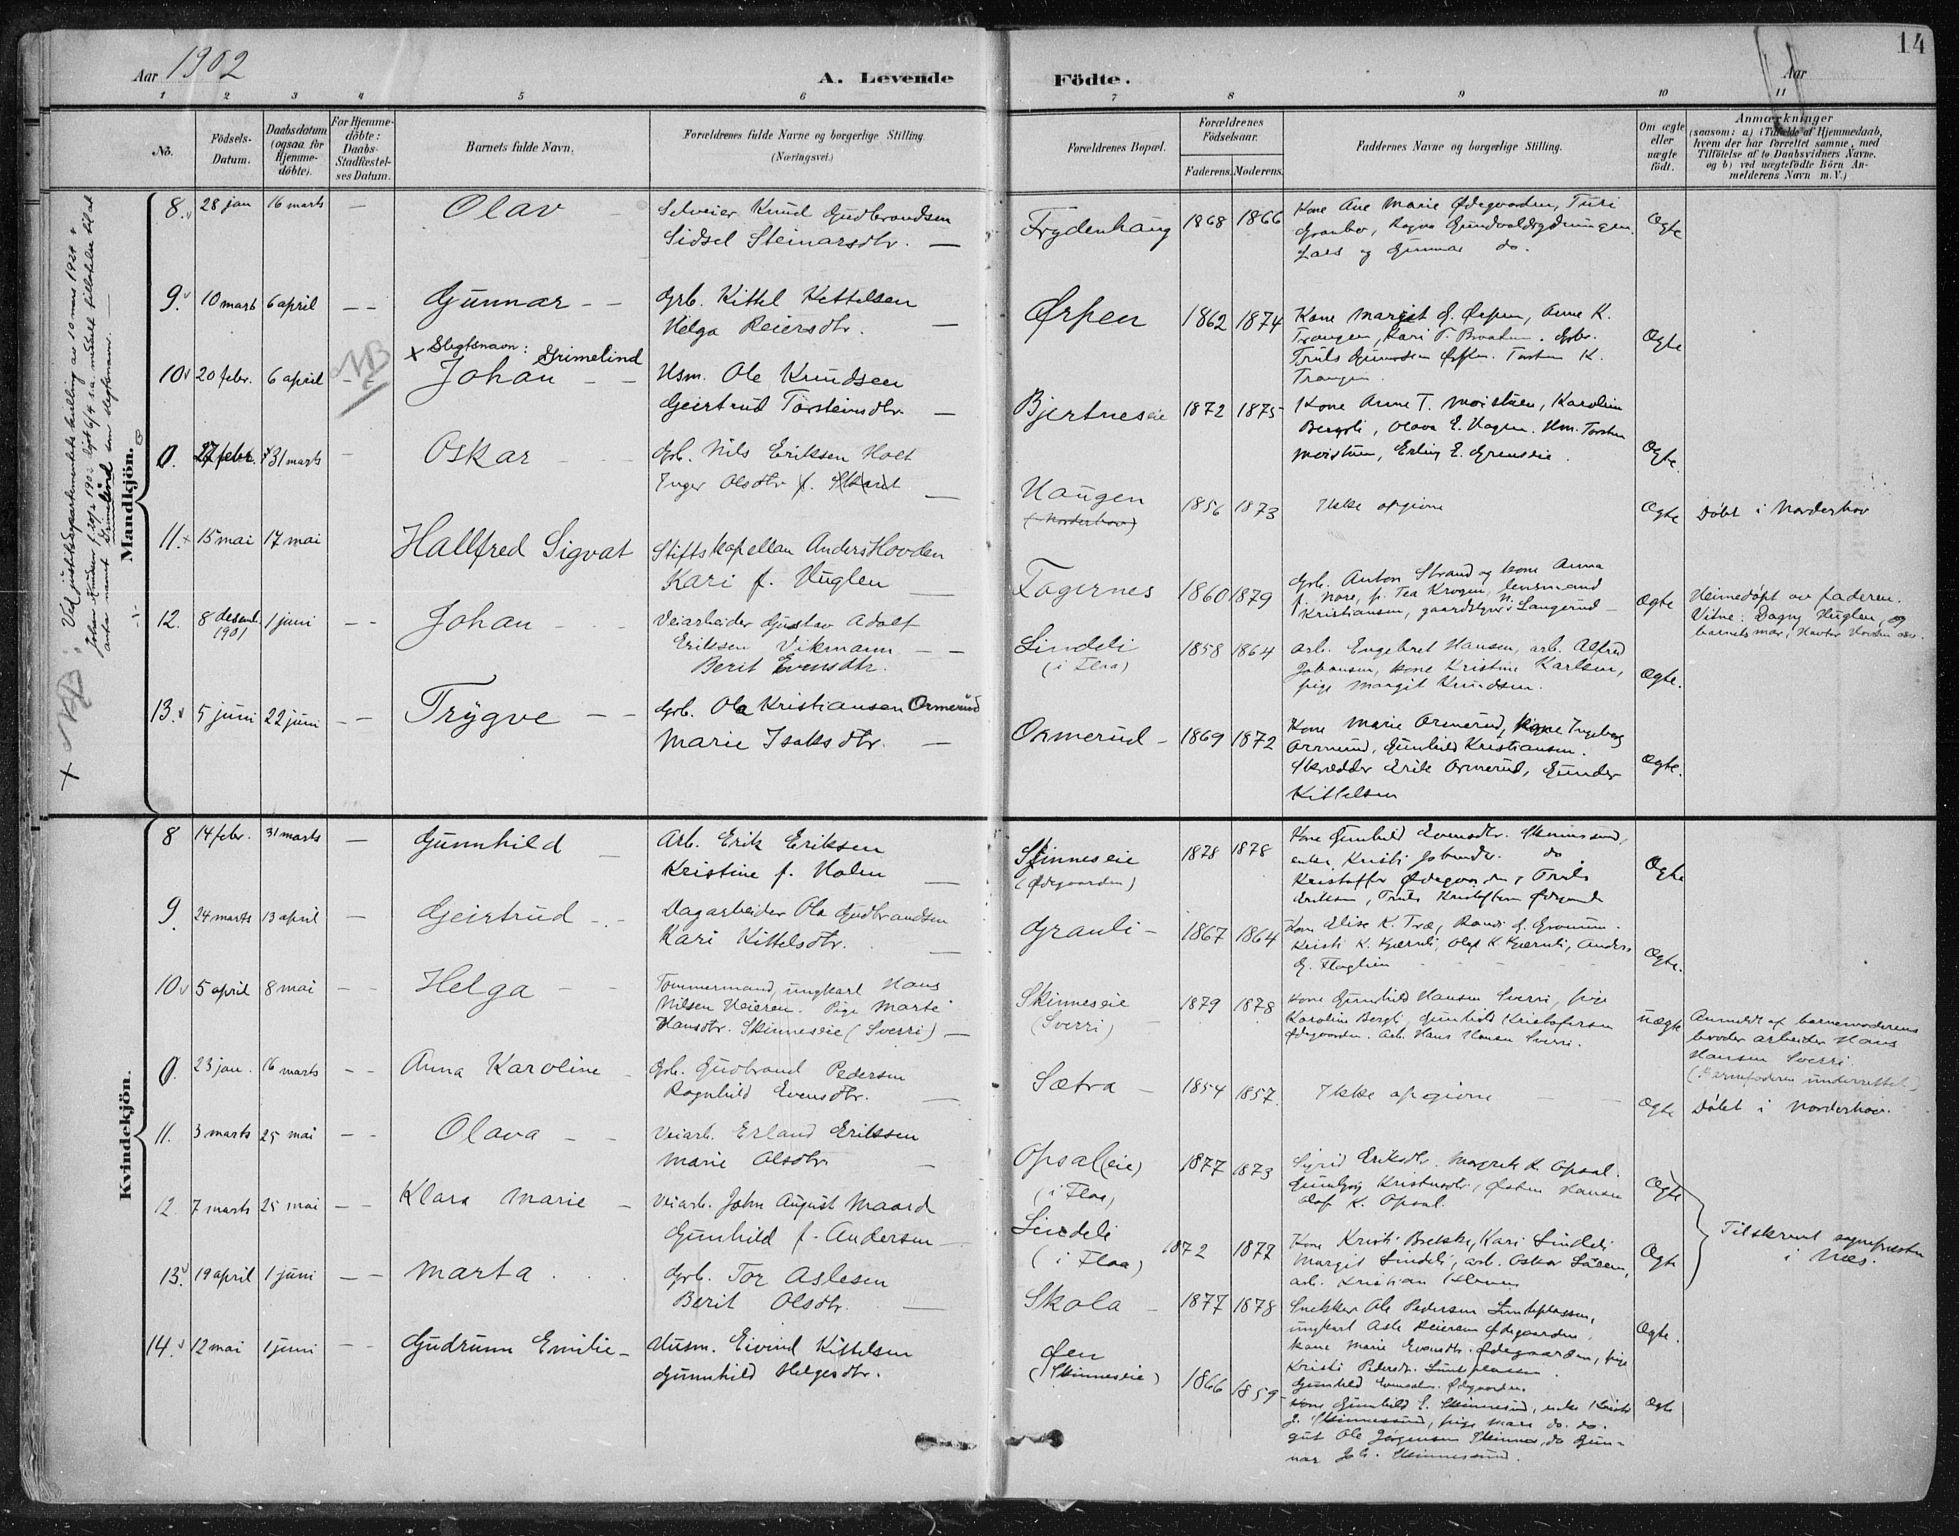 14
Aar 1902
A. Levende Födte.
Aar
1 2 3 4 5 6 7 8 9 10 11
Nô.
Födsels-Datum.
Daabsdatum (ogsaa for Hjemme-döbte).
For Hjemme-döbte: Daabs-Stadfæstel-ses Datum.
Barnets fulde Navn.
Forældrenes fulde Navne og borgerlige Stilling. (Næringsvei.)
Forældrenes Bopæl.
Forældrenes Födselsaar.
Faderens. Moderens.
Faddernes Navne og borgerlige Stilling.
Om ægte eller uægte födt.
Anmærkninger
(saasom: a) i Tilfælde af Hjemmedaab, hvem der har forrettet samme, med Tilföielse af to Daabsvidners Navne, og b) ved uægtefödte Börn An-melderens Navn m. V.)
Mandkjön.
8. 28 jan 16 marts — Olav
Selveier Knud Gudbrandsen
Sidsel Steinarsdtr. —
Frydenhaug 1868 1866
Kone Ane Marie Ødegaarden, Turi
Lars og Gunnar do.
Ægte
9. 10 marts 6 april — — Gunnar — —
Grb. Kittel Kittelsen
Helga Reiersdtr. —
Ørpen 1862 1874
Kone Margit G. Ørpen, Anne K.
Trangen, Kari T. Braaten. Grbr.
Truls Gunnarsen Ørpen. Torsten K.
Trangen.
Ægte
NB
x Slegtsnavn: Grimelind
10 20 febr. 6 april Johan — —
Hsm. Ole Knudsen
Geirtrud Torsteinsdtr. —
Bjertneseie 1872 1875
Kone Anne T. Moistuen, Karoline
Bergli, Olava E. Hagen. Hsm. Torsten
Moistuen, Erling E. Grenseie.
Ægte
0. 27 febr. 31 marts — Oskar
Grb. Nils Eriksen Holt
Inger Olsdtr f. —
Haugen
(Norderhov)
1856 1873
Ikke opgivne
Ægte
Døbt i Norderhov
11. 15 mai 17 mai Hallfred Sigvat
Stiftskapellan Anders Hovden
Kari f. Huglen —
Fagernes 1860 1879
Grb. Anton Strand og kone Anna
f. Nore, fr. Tea Krogen, lensmand
Kristiansen, gaardstyrer N. Langerud —
Ægte
Heimedøpt av faderen.
Vitne: Dagny Huglen, og
12. 8 desemb. 1901 1 juni Johan — — —
Veiarbeider Gustav Adolf
Eriksen Vikmann — —
Berit Evensdtr.
Lindeli
(i Flaa)
1858 1864
arb. Engebret Hansen, arb. Alfred
Johansen, kone Kristine Karlsen,
pige Margit Knudsen.
Ægte.
13. 5 juni 22 juni — — Trygve — —
Grb. Ole Kristiansen Ormerud
Marie Isaksdtr. —
Ormerud — 1869 1872
Kone Marie Ormerud, kone Ingeborg
Ormerud, Gunhild Kristiansen.
Skrædder Erik Ormerud, Gunder
Kittelsen
Ægte.
Kvindekjön.
8 14 febr. 31 marts — Gunnhild —
Arb. Erik Eriksen
Kristine f. Holen —
Skinneseie
(Ødegaarden)
1878 1878
Kone Gunhild Evensdtr. Skinnesund,
enke Kristi do.
Kristoffer Ødegaarden, Truls
Eriksen, Truls Kristoffersen Ødegaarden
Ægte
9. 24 marts 13 april — Geirtrud — —
Dagarbeider Ole Gudbrandsen
Kari Kittelsdtr.
Grauli — 1867 1864
Kone Elise K. Træ, Randi G.
Kristi K. Olaf K. Anders
Ægte.
10 5 april 8 mai — Helga — —
Tømmermand, ungkarl Hans
Nilsen Heieren. Pige Marte
Hansdtr. Skinneseie (Sverri) —
Skinneseie
(Sverri)
1879 1878
Kone Gunhild Hansen Sverri, pige
Karoline Bergli, Gunhild Kristofersen
Ødegaarden. Arb. Hans Hansen Sverri.
uægte
Anmeldt af barnemoderens
broder arbeider Hans
Hansen Sverri.
(Barnefaderen underrettet)
0. 23 jan. 16 marts — Anna Karoline —
Grb. Gudbrand Pedersen
Ragnhild Evensdtr. —
Sætra — 1854 1857.
Ikke opgivne — —
Ægte
Døbt i Norderhov.
11. 3 marts 25 mai — — Olava — —
Veiarb. Erland Eriksen
Marie Olsdtr —
Opsal(eie)
(i Flaa)
1877 1873
Sigrid Eriksdtr. Margrete K. Opsal.
Østen Hansen
Olaf K. Opsal.
Ægte
12. 7 marts 25 mai — — Klara Marie —
Veiarb. John August Maard
Gunhild f. Andersen —
Lindeli
(i Flaa)
1872 1877
Kone Kristi Kari Lindeli
Margit Lindeli, arb. Oskar
arb. Kristian
Ægte
Tilskrevet sognepræsten
i Næs.
13. 19 april 1 juni — — Marta
Grb. Tor Aslesen
Berit Olsdtr. —
Skola — 1877 1878
Snekker Ole Pedersen
ungkarl Asle Reiersen Ødegaarden,
kone Marie Evensdtr. Ødegaarden, pige
Kristi Pedersdtr.
Gunhild Evensdtr. Ødegaarden
Ægte.
14. 12 mai 1 juni — — Gudrunn Emilie —
Husm. Eivind Kittelsen
Gunnhild Helgesdtr.
Øen
(Skinneseie)
1866 1859
Kone Gunhild E. Skinnesund, enke
Skinnessund, pige Mari do. do.
gut Ole Jørgensen Skinnes, do Gun-
nar Joh. Skinnessund.
Ægte
+ NB: Ved justisdepartementets bevilling av 10 mars 1924
Johan Knudsen f. 20/2 1902 døpt 6/4 s.a. meddelt tilladelse til at
anta navnet Grimelind som slegtsnavn. —